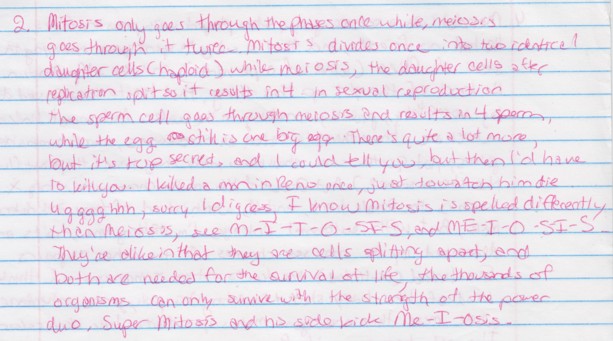 2. Mitosis only goes through the phases once while, meiosis
goes through it twice. Mitosis divides once into two identical
daughter cells (haploid) while meiosis, the daughter cells after
replication split so it results in 4 in sexual reproduction
The sperm cell goes through meiosis and results in 4 sperm,
while the egg still is one big egg. There's quite a lot more,
but it's top secret, and I could tell you, but then I'd have
to kill you. I killed a man in Reno once, just to watch him die
ugggghhh, sorry I digress, I know mitosis is spelled differently
than Meiosis, see M-I-T-O-SI-S, and ME-I-O-SI-S-
They're alike in that they are cells splitting apart, and
both are needed for the survival of life, the thousands of
organisms can only survive with the strength of the power
duo, Super Mitosis and his side kick Me-I-osis.